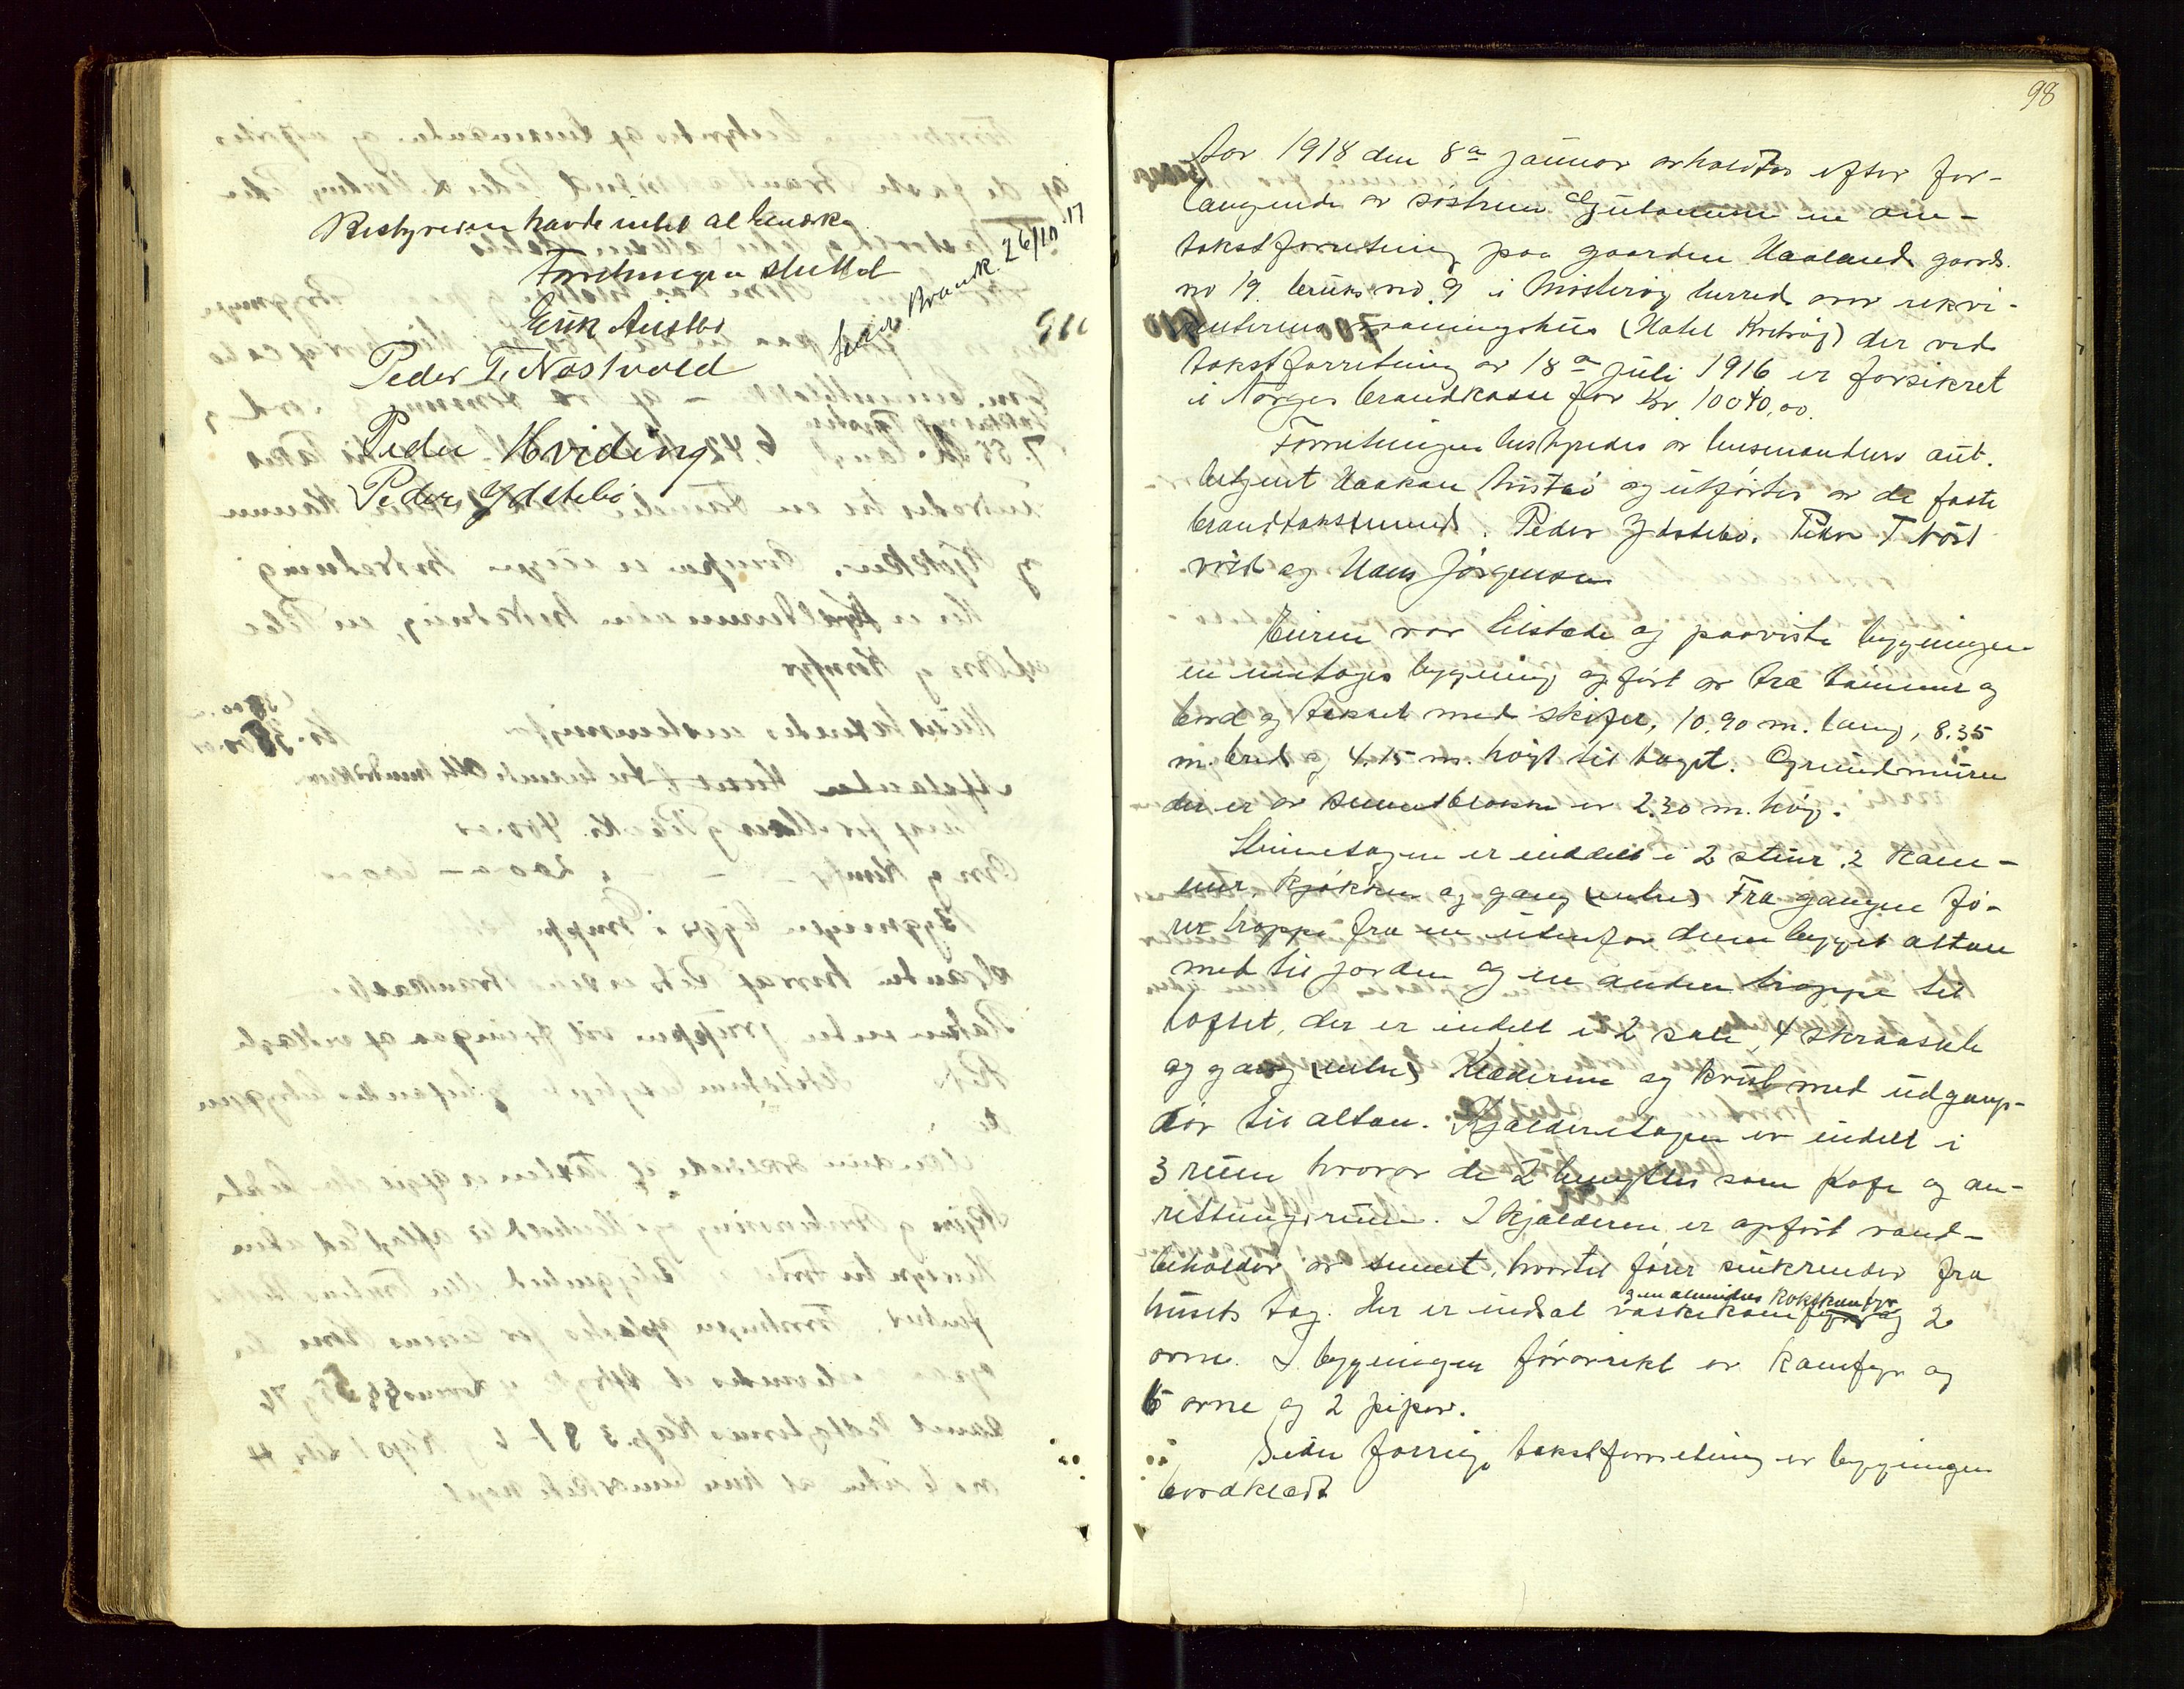 Bestyreren havde intet at bemerke
Forretningen sluttet
Erik Austbø
Peder T. Nöstvold
Peder Hviding
Peder Ydstebö
Brandk. 26/10 17
98
Aar 1918 den 8de januar avholdtes efter for-
langende av söstrene en om-
takstforretning paa gaarden Haaland gaards
no 19. bruks no. 9 i Mosteröy herred over rekvi-
renternes vaaningshus (Hotel Kvitsöy) der ved
takstforretning av 18de juli 1916 er forsikret
i Norges brandkasse for Kr. 10040,00.
Forretningen bestyredes av lensmandens aut.
betjent Haakon og utförtes av de faste
brandtakstmænd. Peder Ydstebö. Peder T Nöst
vold og Hans Jörgensen
Eieren var tilstede og paaviste bygningen
en enetages bygning opfört av træ tömmer og
bord og tækket med skifer, 10.90 m. lang, 8.35
m. bred og 4.15 m. höit til taget. Grundmuren
der er av sementblokke er 2.30 m. höy.
1steetagen er inddelt i 2 stuer, 2 kam-
mer, kjökken og gang (entre) Fra gangen fö-
rer trappe fra en utenfor denne bygget altan
ned til jorden og en anden trappe til
loftet, der er indelt i 2 sale, 4 skraasale
og gang (entre) Klæderum og kvist med udgangs-
dör til altan. Kjælderetagen er indelt i
3 rum hvorav de 2 benyttes som Kafe og an-
retningsrum. I kjælderen er opfört vand-
beholder av sement, hvortil förer sinkrender fra
husets tag. Her er indsat vaskekomfyr og 2
g en almindes kokskomfyr
ovne. I bygningen forövrikt er komfyr og
6 ovne og 2 piper.
Siden forrige takstforretning er bygningen
bordklædt